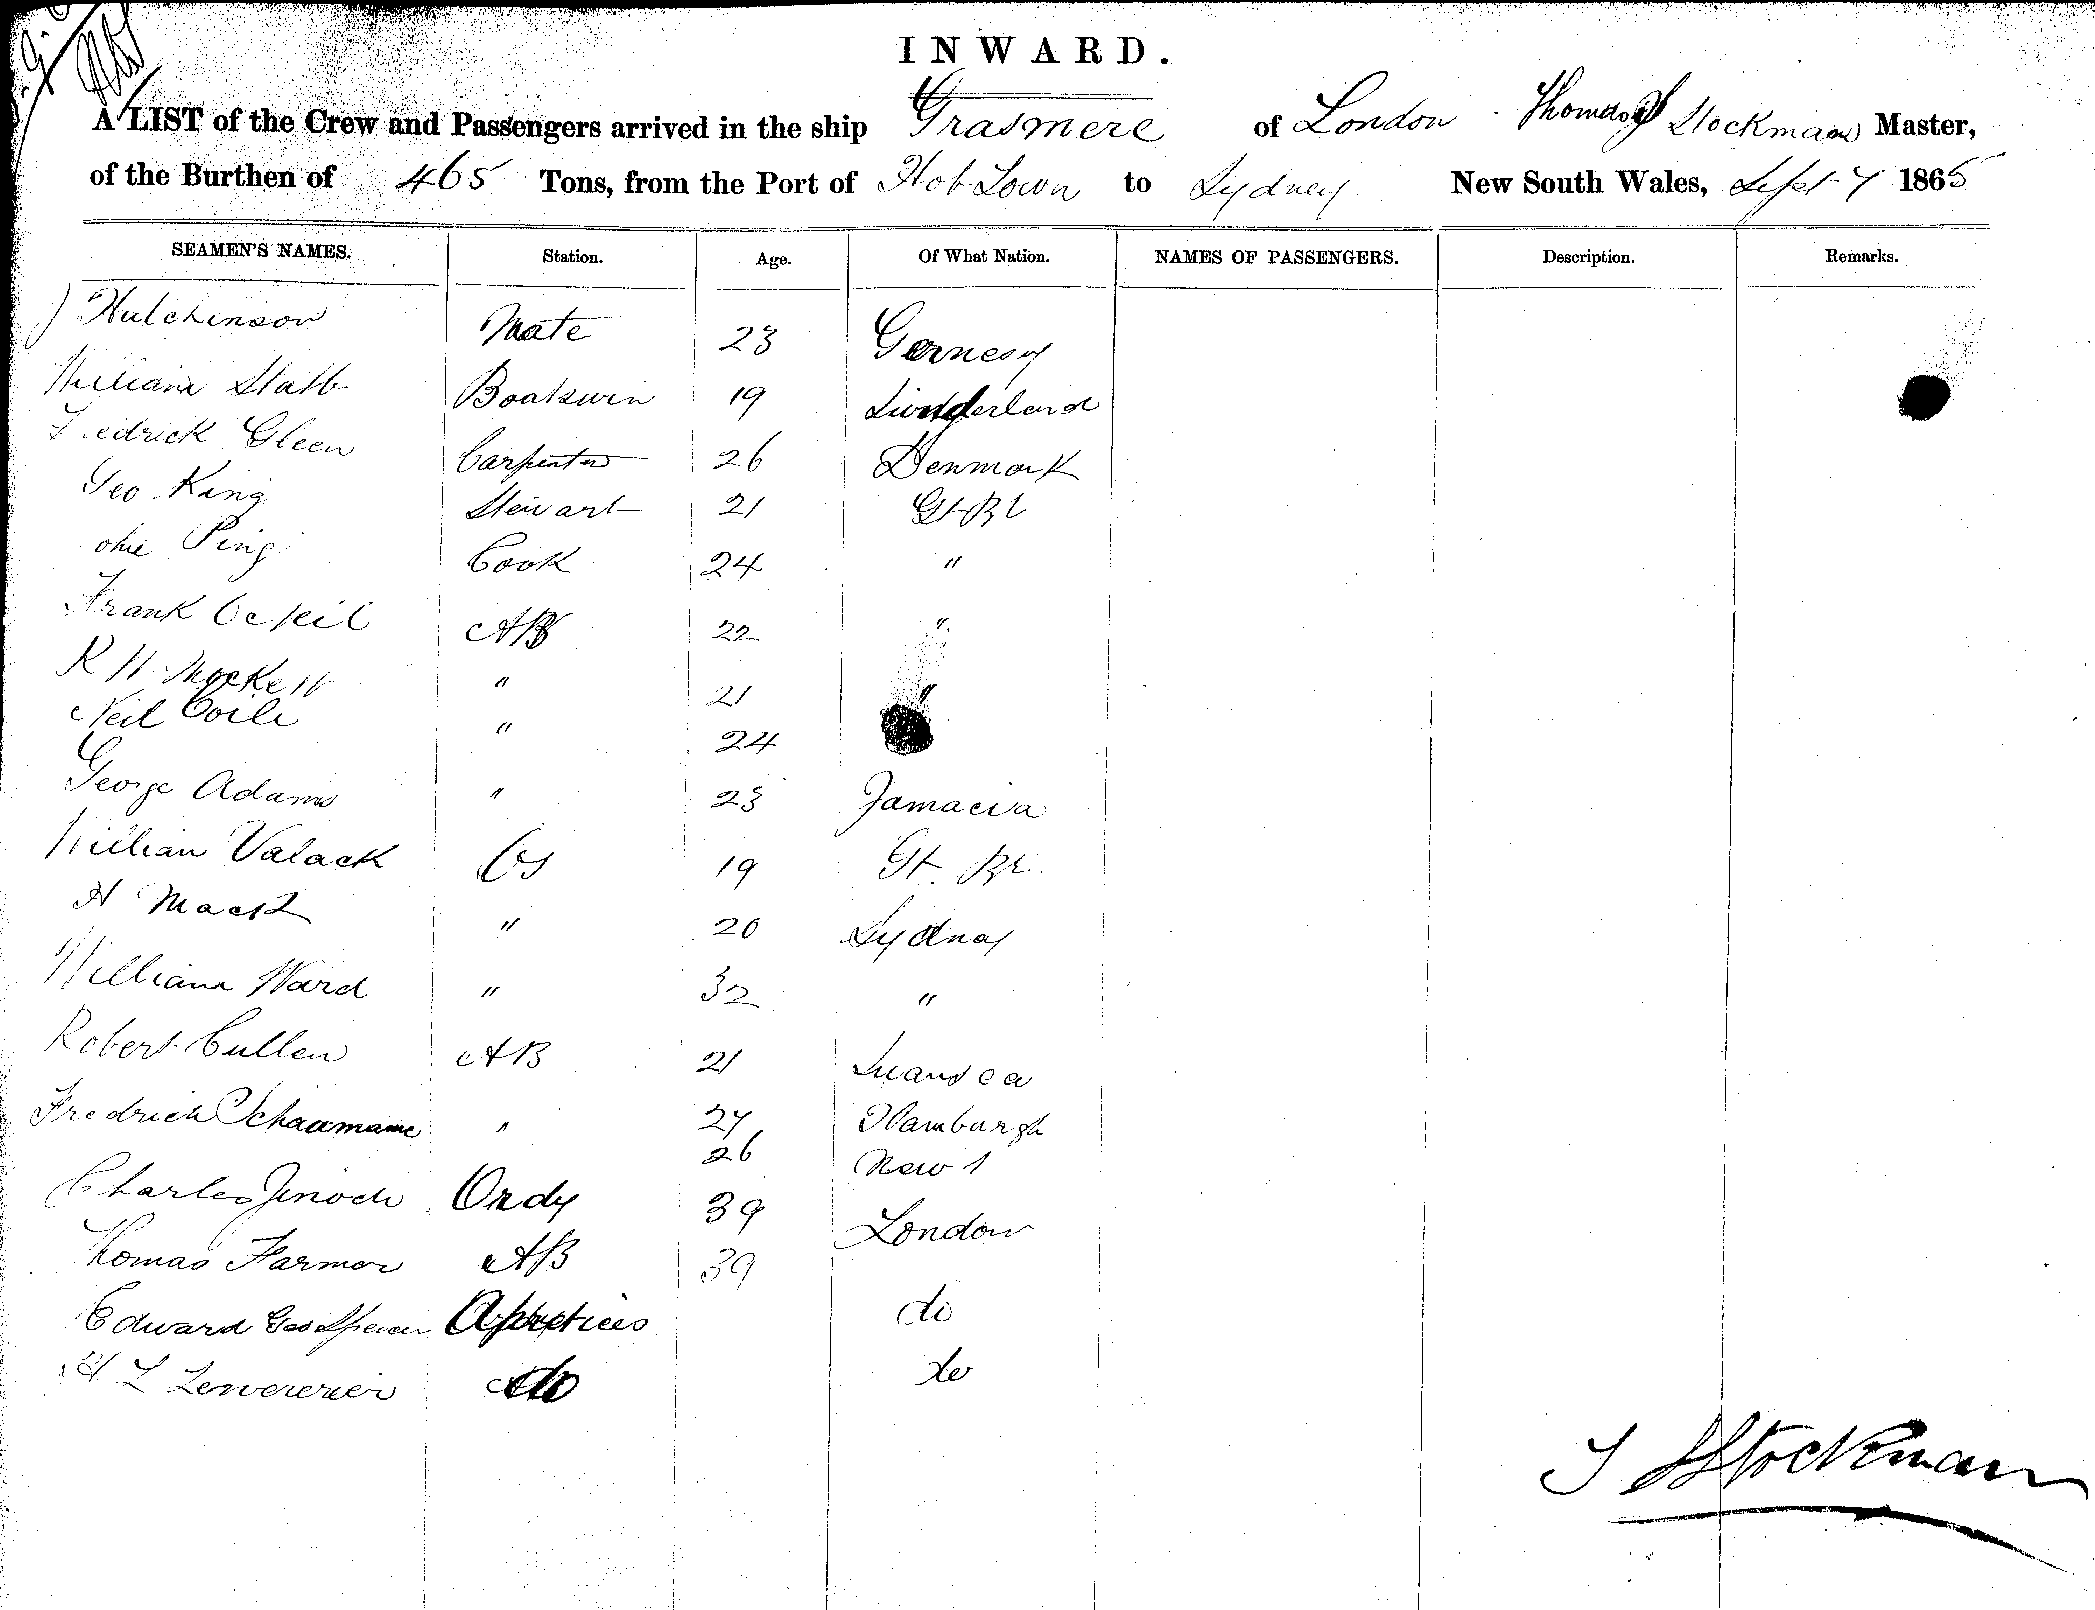 INWARD.
A LIST of the Crew and Passengers arrived in the ship Grasmere of London Thomas Stockman Master,
of the Burthen of 465 Tons, from the Port of Hob Town to Sydney New South Wales, Sept 7 1865
SEAMEN'S NAMES. Station. Age. Of What Nation. NAMES OF PASSENGERS. Description. Remarks.
J Hutchinson Mate 23 Gernesy
William Stabb Boatswin 19 Sunderland
Fredrick Gleen Carpenter 26 Denmark
Geo King Stewart 21 Gt Br
Ping Cook 24 "
Frank AB 22 "
R H " 21 "
Neil " 24
George Adams " 23 Jamacia
William Valack Os 19 Gt. Br.
H Mack " 20 Sydney
William Ward " 32 "
Robert Cullen AB 21 Swansea
Fredrich " 27 Hamburgh
26 New
Charles Ordy 39 London
Thomas Farmer AB 39
Edward Geo Spencer Apretices do
L do do
T S Stockman